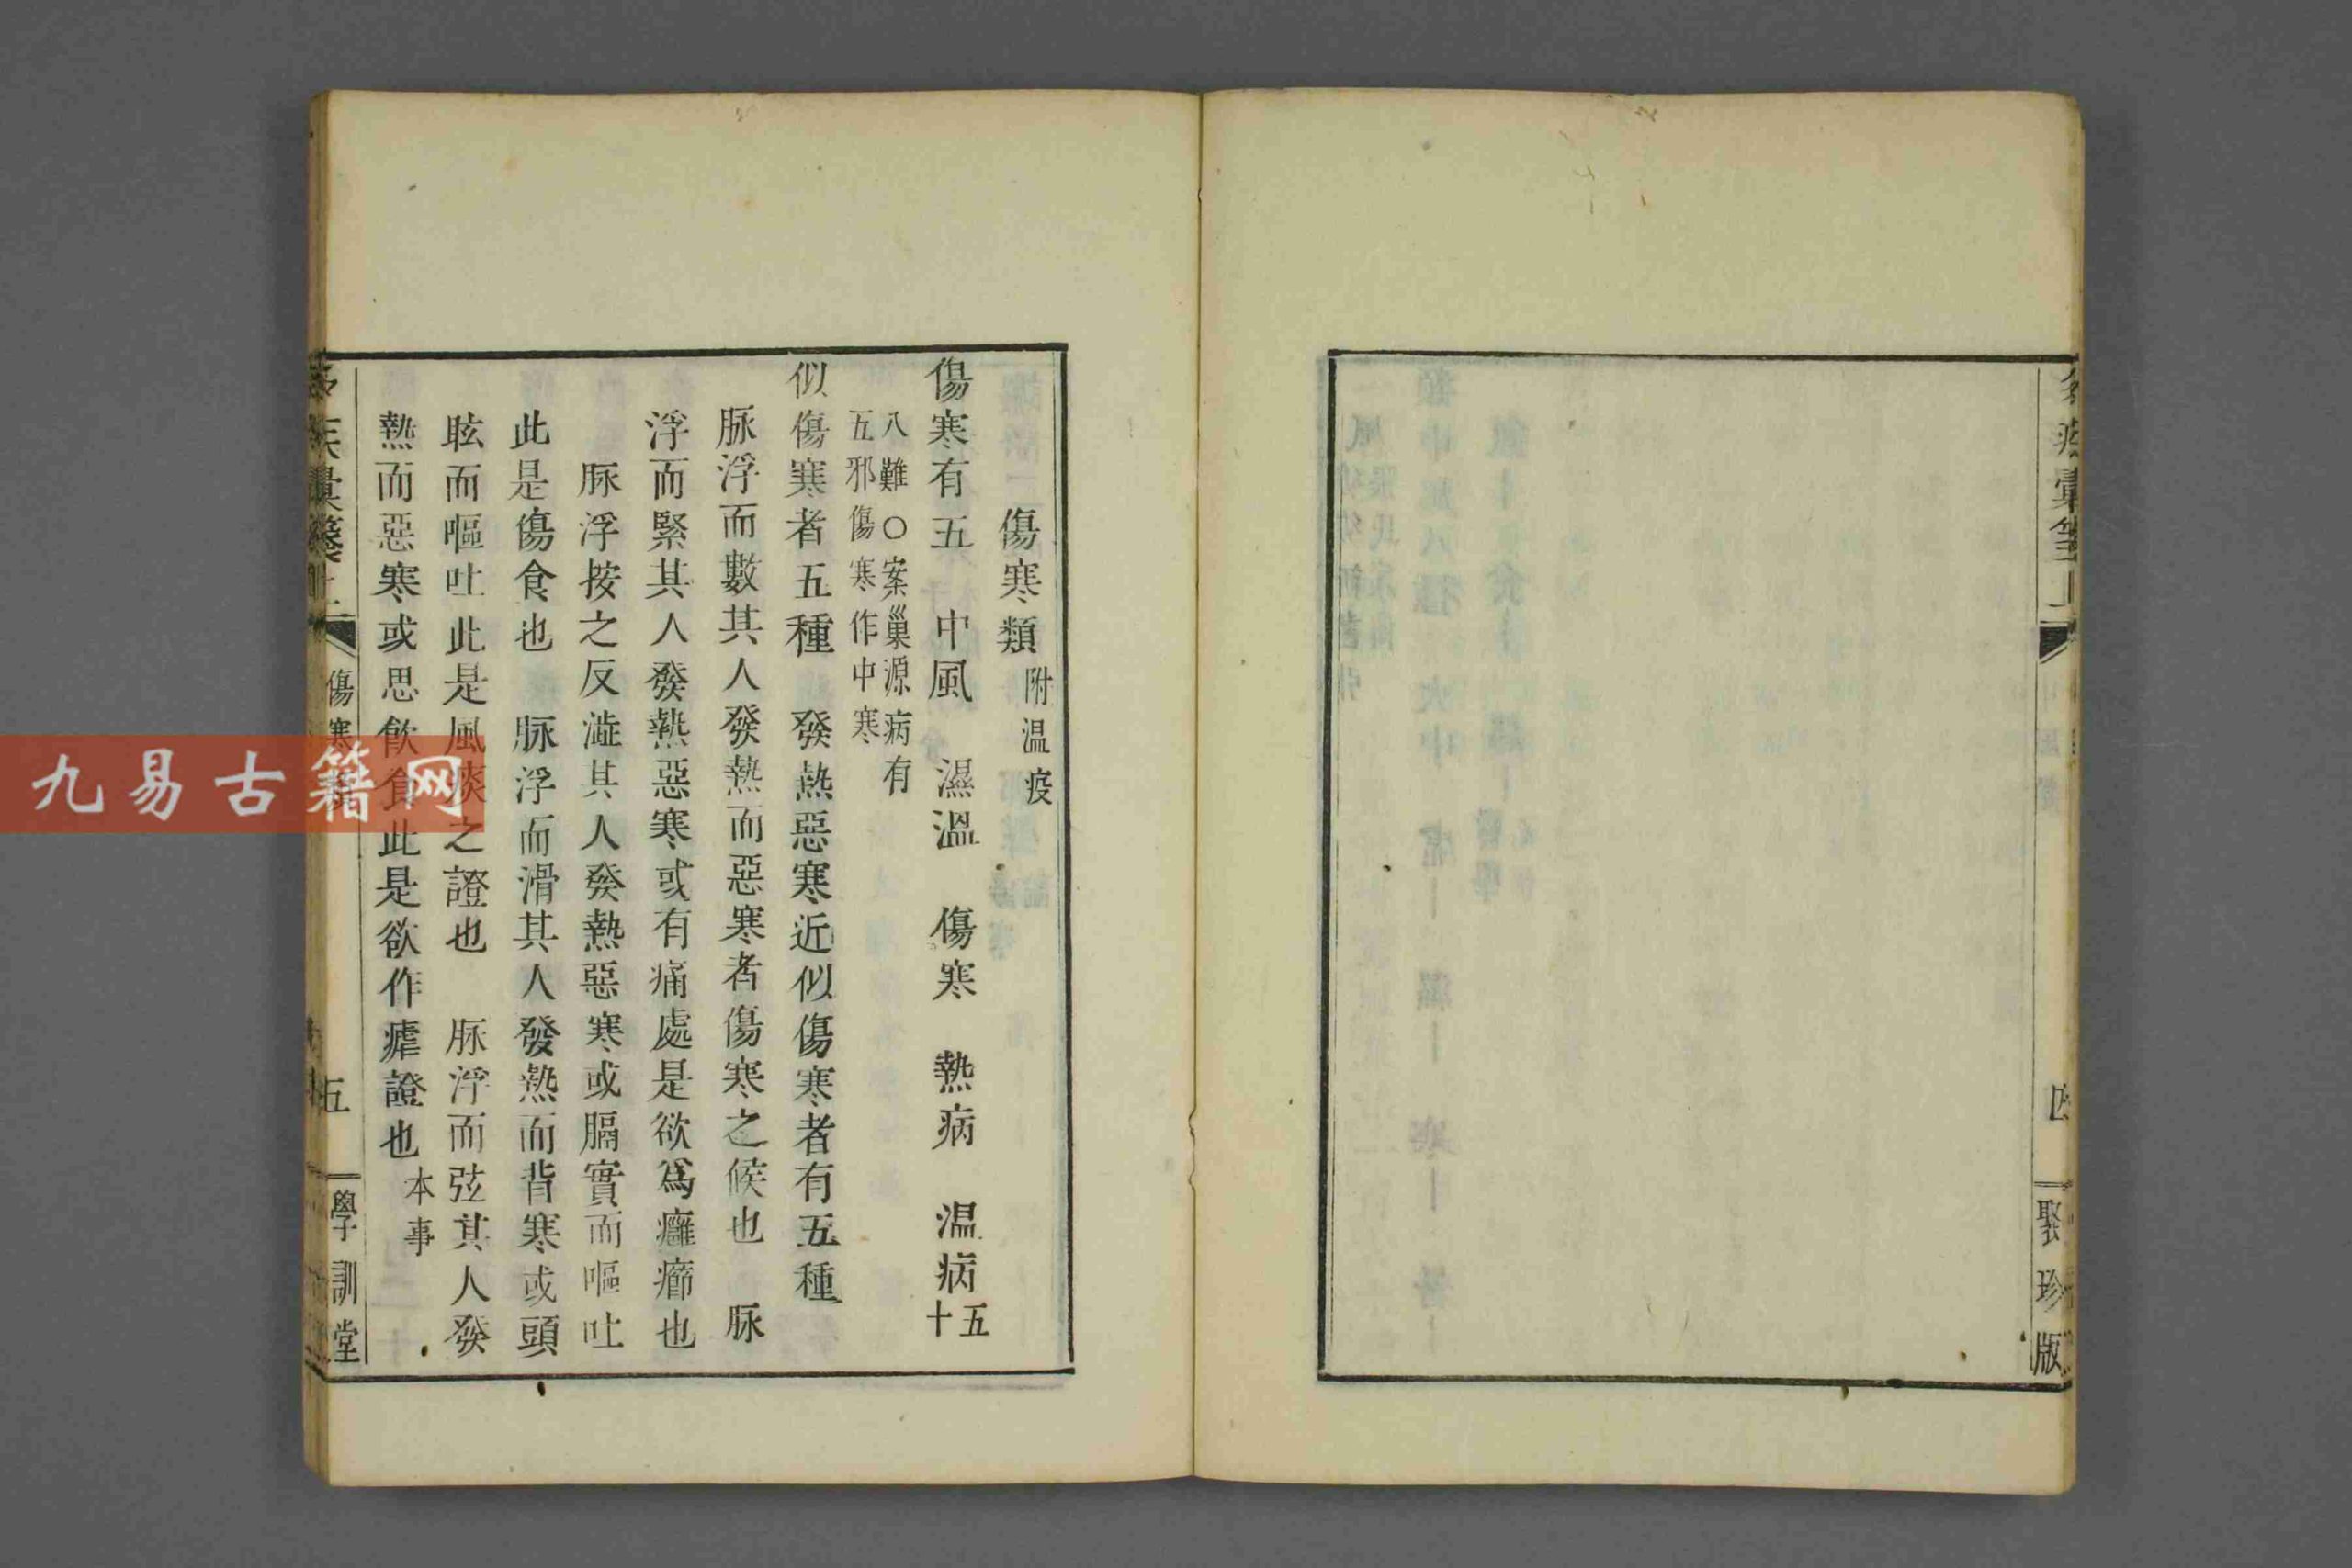 四
聚珍版
傷寒類附温疫
傷寒有五 中風 濕溫 傷寒 熱病 温病五十
八難〇案巢源病有
五邪傷寒作中寒
似傷寒者五種 發熱惡寒近似傷寒者有五種
脉浮而數其人發熱而惡寒者傷寒之候也 脉
浮而緊其人發熱惡寒或有痛處是欲爲癰癤也
脉浮按之反澁其人發熱惡寒或膈實而嘔吐
此是傷食也 脉浮而滑其人發熱而背寒或頭
眩而嘔吐此是風痰之證也 脉浮而弦其人發
熱而惡寒或思飲食此是欲作瘧證也本事
傷寒類
五
學訓堂
九易古籍网